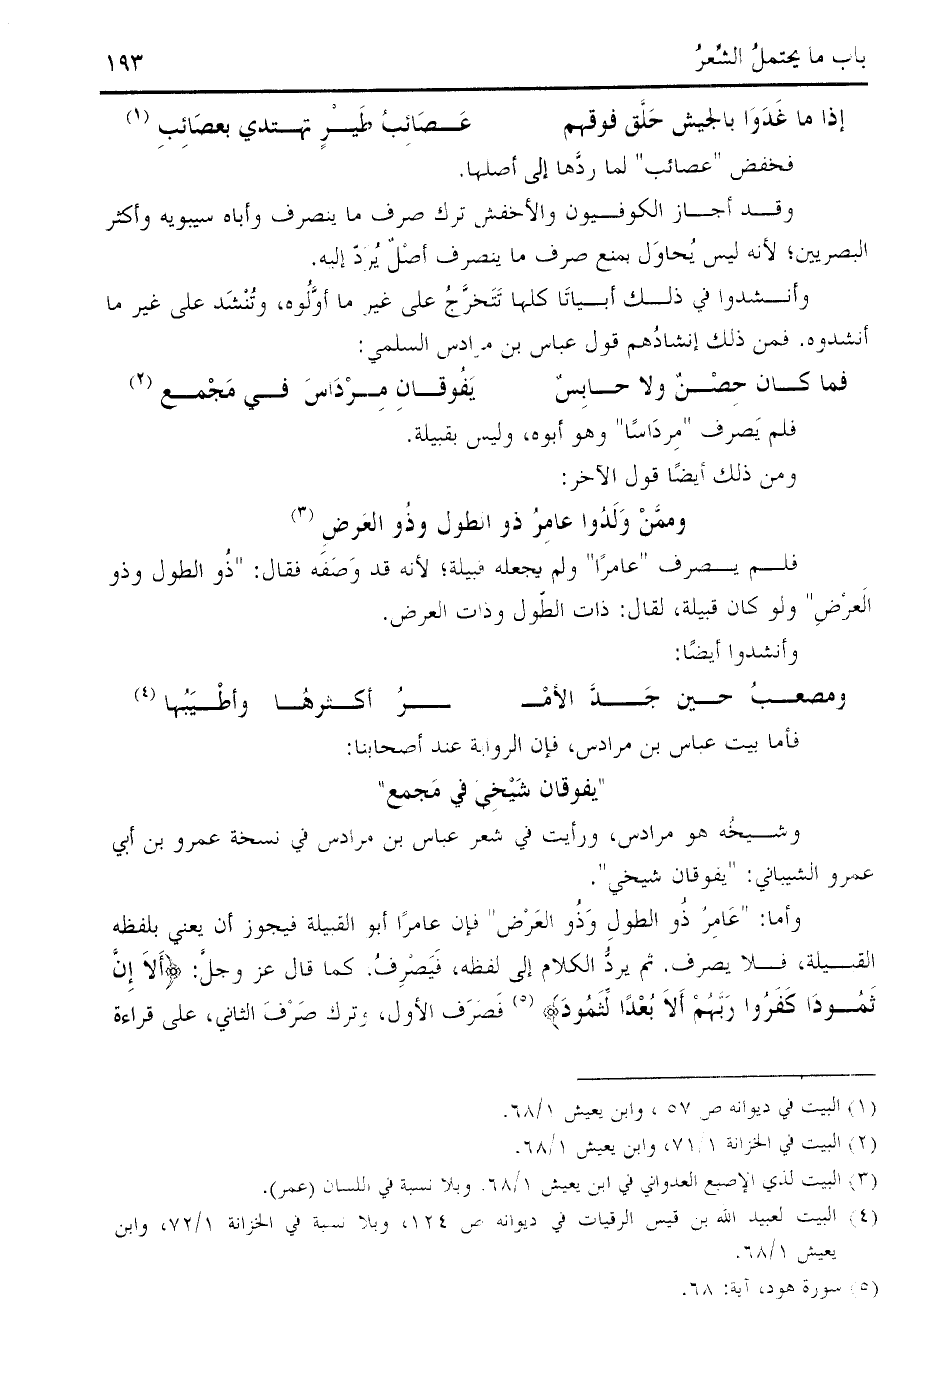 باب ما يحتملُ الشِّعرُ ١٩٣
إذا ما غَدَوَا بالجيش حَلَّق فوقهم عَـصَائِبُ طَيْرٍ تهـتدي بعصَائِبِ (١)
فخفض "عصائب" لما ردَّها إلى أصلها.
وقـد أجـاز الكوفـيون والأخفش ترك صرف ما ينصرف وأباه سيبويه وأكثر
البصريين؛ لأنه ليس يُحاوَل بمنع صرف ما ينصرف أصلٌ يُرَدّ إليه.
وأنـشدوا في ذلـك أبـياتًا كلها تَتَخرَّجُ على غير ما أوَّلُوه، وتُنْشَد على غير ما
أنشدوه. فمن ذلك إنشادُهم قول عباس بن مرادس السلمي:
فما كـان حِصْـنٌ ولا حـابسٌ يَفُوقـانِ مِـرْدَاسَ فـي مَجْمـع (٢)
فلم يَصرف "مِردَاسًا" وهو أبوه، وليس بقبيلة.
ومن ذلك أيضًا قول الآخر:
وممَّنْ وَلَدُوا عامِرُ ذو الطول وذُو العَرض (٣)
فلـم يـصرف "عامرًا" ولم يجعله قبيلة؛ لأنه قد وَصَفَه فقال: "ذُو الطول وذو
العَرْضِ" ولو كان قبيلة، لقال: ذات الطّول وذات العرض.
وأنشدوا أيضًا:
ومصعـبُ حـين جَـدَّ الأمْـ ـرُ أكـثرهُـا وأطْـيَبُها (٤)
فأما بيت عباس بن مرادس، فإن الرواية عند أصحابنا:
"يفوقان شَيْخِيَ في مَجمع"
وشـيخُه هو مرادس، ورأيت في شعر عباس بن مرادس في نسخة عمرو بن أبي
عمرو الشيباني: "يفوقان شيخي".
وأما: "عَامرُ ذُو الطولِ وَذُو العَرْض" فإن عامرًا أبو القبيلة فيجوز أن يعني بلفظه
القبـيلة، فـلا يصرف. ثم يردُّ الكلام إلى لفظه، فَيَصْرِفُ. كما قال عز وجلَّ: ﴿أَلاَ إِنَّ
ثَمُـودَا كَفَرُوا رَبَّهُمْ أَلاَ بُعْدًا لِّثَمُودَ﴾ (٥) فَصَرَف الأول، وترك صَرْفَ الثاني، على قراءة
(١) البيت في ديوانه ص ٥٧، وابن يعيش ٦٨/١.
(٢) البيت في الخزانة ٧١/١، وابن يعيش ٦٨/١.
(٣) البيت لذي الإصبع العدواني في ابن يعيش ٦٨/١. وبلا نسبة في اللسان (عمر).
(٤) البيت لعبيد الله بن قيس الرقيات في ديوانه ص ١٢٤، وبلا نسبة في الخزانة ٧٢/١، وابن
يعيش ٦٨/١.
(٥) سورة هود، آية: ٦٨.